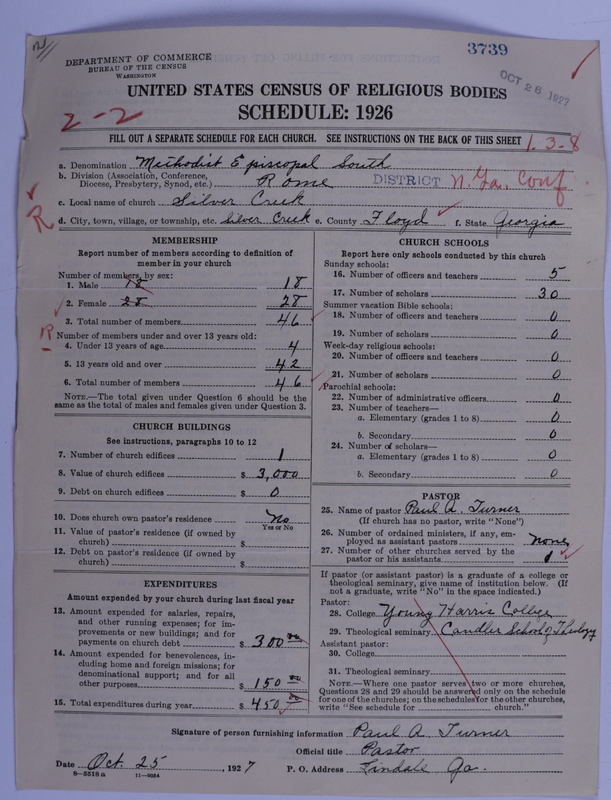 3739
OCT 26 1927
DEPARTMENT OF COMMERCE
BUREAU OF THE CENSUS
WASHINGTON
UNITED STATES CENSUS OF RELIGIOUS BODIES
SCHEDULE: 1926
2-2
FILL OUT A SEPARATE SCHEDULE FOR EACH CHURCH. SEE INSTRUCTIONS ON THE BACK OF THIS SHEET
1.3-8
a. Denomination Methodist Episcopal South
b. Division (Association, Conference, Diocese, Presbytery, Synod, etc.) Rome DISTRICT N. Ga. Conf
c. Local name of church Silver Creek
R
d. City, town, village, or township, etc. Silver Creek e. County Floyd f. State Georgia
MEMBERSHIP
Report number of members according to definition of
member in your church
Number of members, by sex:
1. Male 18 18
2. Female 28 28
3. Total number of members 46
R
Number of members under and over 13 years old:
4. Under 13 years of age 4
5. 13 years old and over 42
6. Total number of members 46
NOTE.—The total given under Question 6 should be
same as the total of males and females given under Question 3.
CHURCH BUILDINGS
See instructions, paragraphs 10 to 12
7. Number of church edifices 1
8. Value of church edifices $ 3,000
9. Debt on church edifices $ 0
10. Does church own pastor's residence No
Yes or No
11. Value of pastor's residence (if owned by
church) $
12. Debt on pastor's residence (if owned by
church) $
EXPENDITURES
Amount expended by your church during last fiscal year
13. Amount expended for salaries, repairs,
and other running expenses; for im-
provements or new buildings; and for
payments on church debt $ 300 00
14. Amount expended for benevolences, in-
cluding home and foreign missions; for
denominational support; and for all
other purposes $ 150 00
15. Total expenditures during year $ 450 00
CHURCH SCHOOLS
Report here only schools conducted by this church
Sunday schools:
16. Number of officers and teachers 5
17. Number of scholars 30
Summer vacation Bible schools:
18. Number of officers and teachers 0
19. Number of scholars 0
Week-day religious schools:
20. Number of officers and teachers 0
21. Number of scholars 0
Parochial schools:
22. Number of administrative officers 0
23. Number of teachers—
a. Elementary (grades 1 to 8) 0
b. Secondary 0
24. Number of scholars—
a. Elementary (grades 1 to 8) 0
b. Secondary 0
PASTOR
25. Name of pastor Paul A. Turner
(If church has no pastor, write "None")
26. Number of ordained ministers, if any, em-
ployed as assistant pastors none
27. Number of other churches served by the
pastor or his assistants 1
If pastor (or assistant pastor) is a graduate of a college or
theological seminary, give name of institution below. (If
not a graduate, write "No" in the space indicated.)
Pastor:
28. College Young Harris College
29. Theological seminary Candler School of Theology
Assistant pastor:
30. College
31. Theological seminary
NOTE.—Where one pastor serves two or more churches,
Questions 28 and 29 should be answered only on the schedule
for one of the churches; on the schedules for the other churches,
write "See schedule for church."
Signature of person furnishing information Paul A Turner
Official title Pastor
Date Oct. 25, 1927 P. O. Address Lindale Ga.
8—5518 a 11—9034